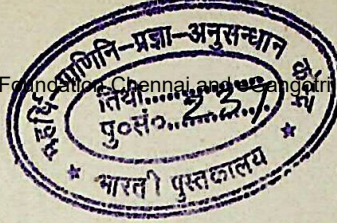 महर्षि-पाणिनि-प्रज्ञा-अनुसन्धान केन्द्र
Foundation Chennai and eGangotri
तिथि..............
पु०सं०...237...
भारती पुस्तकालय